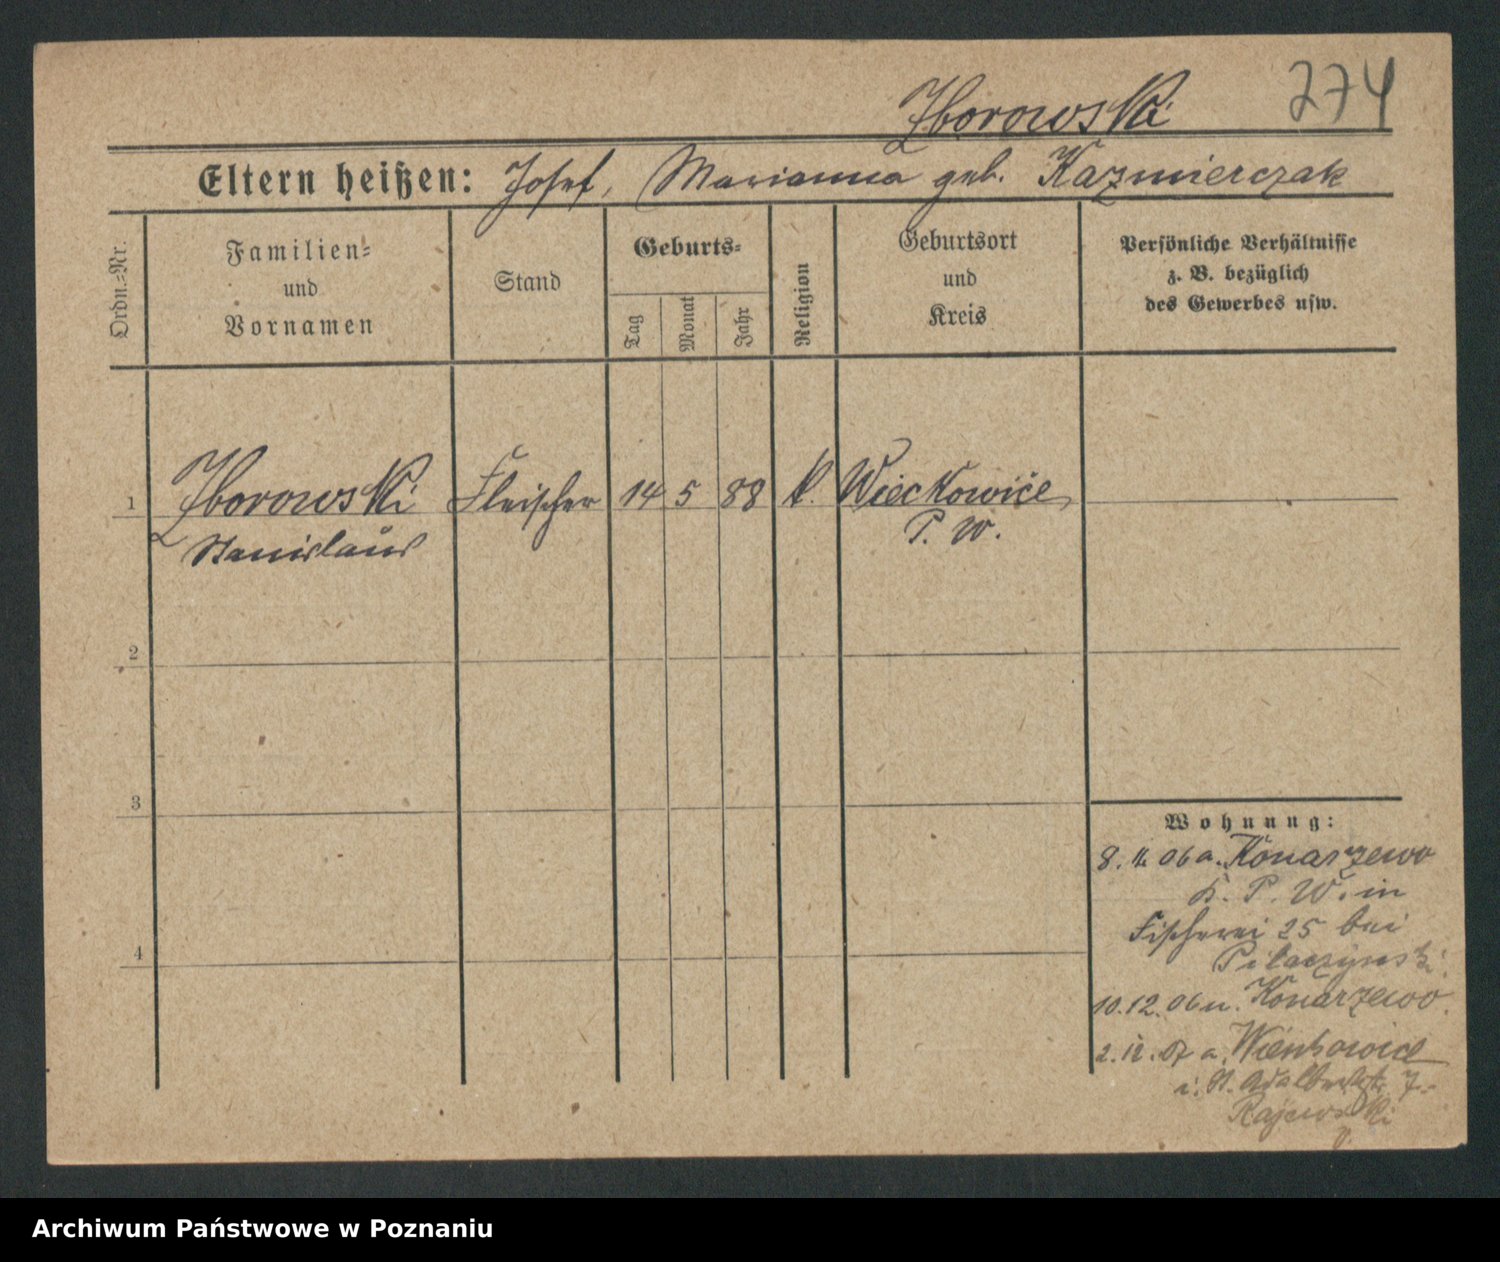 Zborowski 274
Eltern heißen: Josef, Marianna geb. Kazmierczak
Ordn.-Nr.
Familien-
und
Vornamen
Stand
Geburts-
Tag
Monat
Jahr
Religion
Geburtsort
und
Kreis
Persönliche Verhältnisse
z. B. bezüglich
des Gewerbes usw.
1 Zborowski Fleischer 14 5 88 k. Wieckowice
Stanislaus P. W.
2
3
4
Wohnung:
8. 11. 06 a. Konarzewo
K. P. W. in
Fischerei 25 bei
Pilaczynski
10.12.06 n. Konarzewo.
2.12.07 a. Wienkowice
i. St. Adalbertstr. 7.
Rajewski
Archiwum Państwowe w Poznaniu